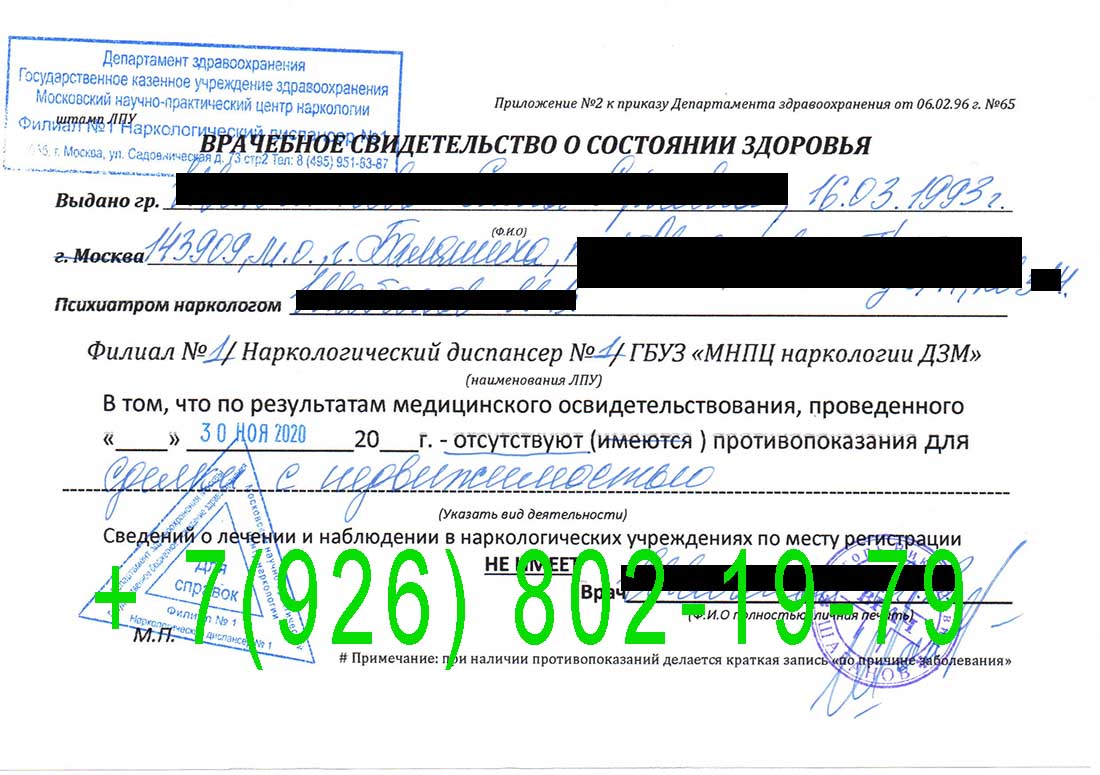 Департамент здравоохранения
Государственное казенное учреждение здравоохранения
Московский научно-практический центр наркологии
Филиал №1 Наркологический диспансер №1
г. Москва, ул. Садовническая д. 73 стр2 Тел: 8 (495) 951-83-87
штамп ЛПУ
Приложение №2 к приказу Департамента здравоохранения от 06.02.96 г. №65
ВРАЧЕБНОЕ СВИДЕТЕЛЬСТВО О СОСТОЯНИИ ЗДОРОВЬЯ
Выдано гр. 16.03.1993г.
(Ф.И.О)
г. Москва 143909, М.О., г. Балашиха,
Психиатром наркологом
Филиал №1/ Наркологический диспансер №1/ ГБУЗ «МНПЦ наркологии ДЗМ»
(наименования ЛПУ)
В том, что по результатам медицинского освидетельствования, проведенного
«____» 30 НОЯ 2020 20___г. - отсутствуют (имеются ) противопоказания для
сделки с недвижимостью
(Указать вид деятельности)
Сведений о лечении и наблюдении в наркологических учреждениях по месту регистрации
НЕ ИМЕЕТ
+ 7(926) 802-19-79
Врач
(Ф.И.О полностью, личная печать)
Для
справок
Филиал № 1
Наркологический диспансер № 1
М.П.
ВРАЧ
ШАБАНОВ
# Примечание: при наличии противопоказаний делается краткая запись «по причине заболевания»